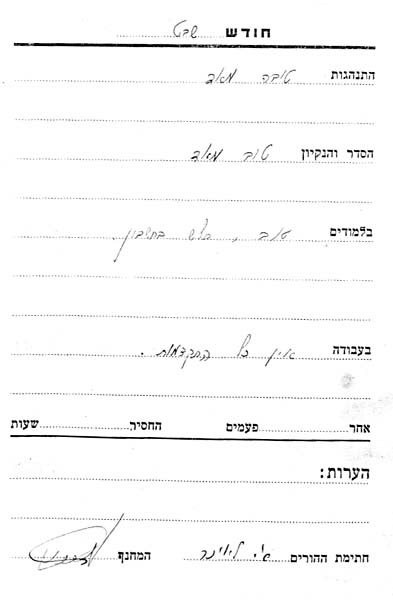 חודש שבט
התנהגות טובה מאד
הסדר והנקיון טוב מאד
בלמודים טוב, חלש בחשבון.
בעבודה אין כל התקדמות.
אחר פעמים החסיר שעות
הערות:
חתימת ההורים המחנך